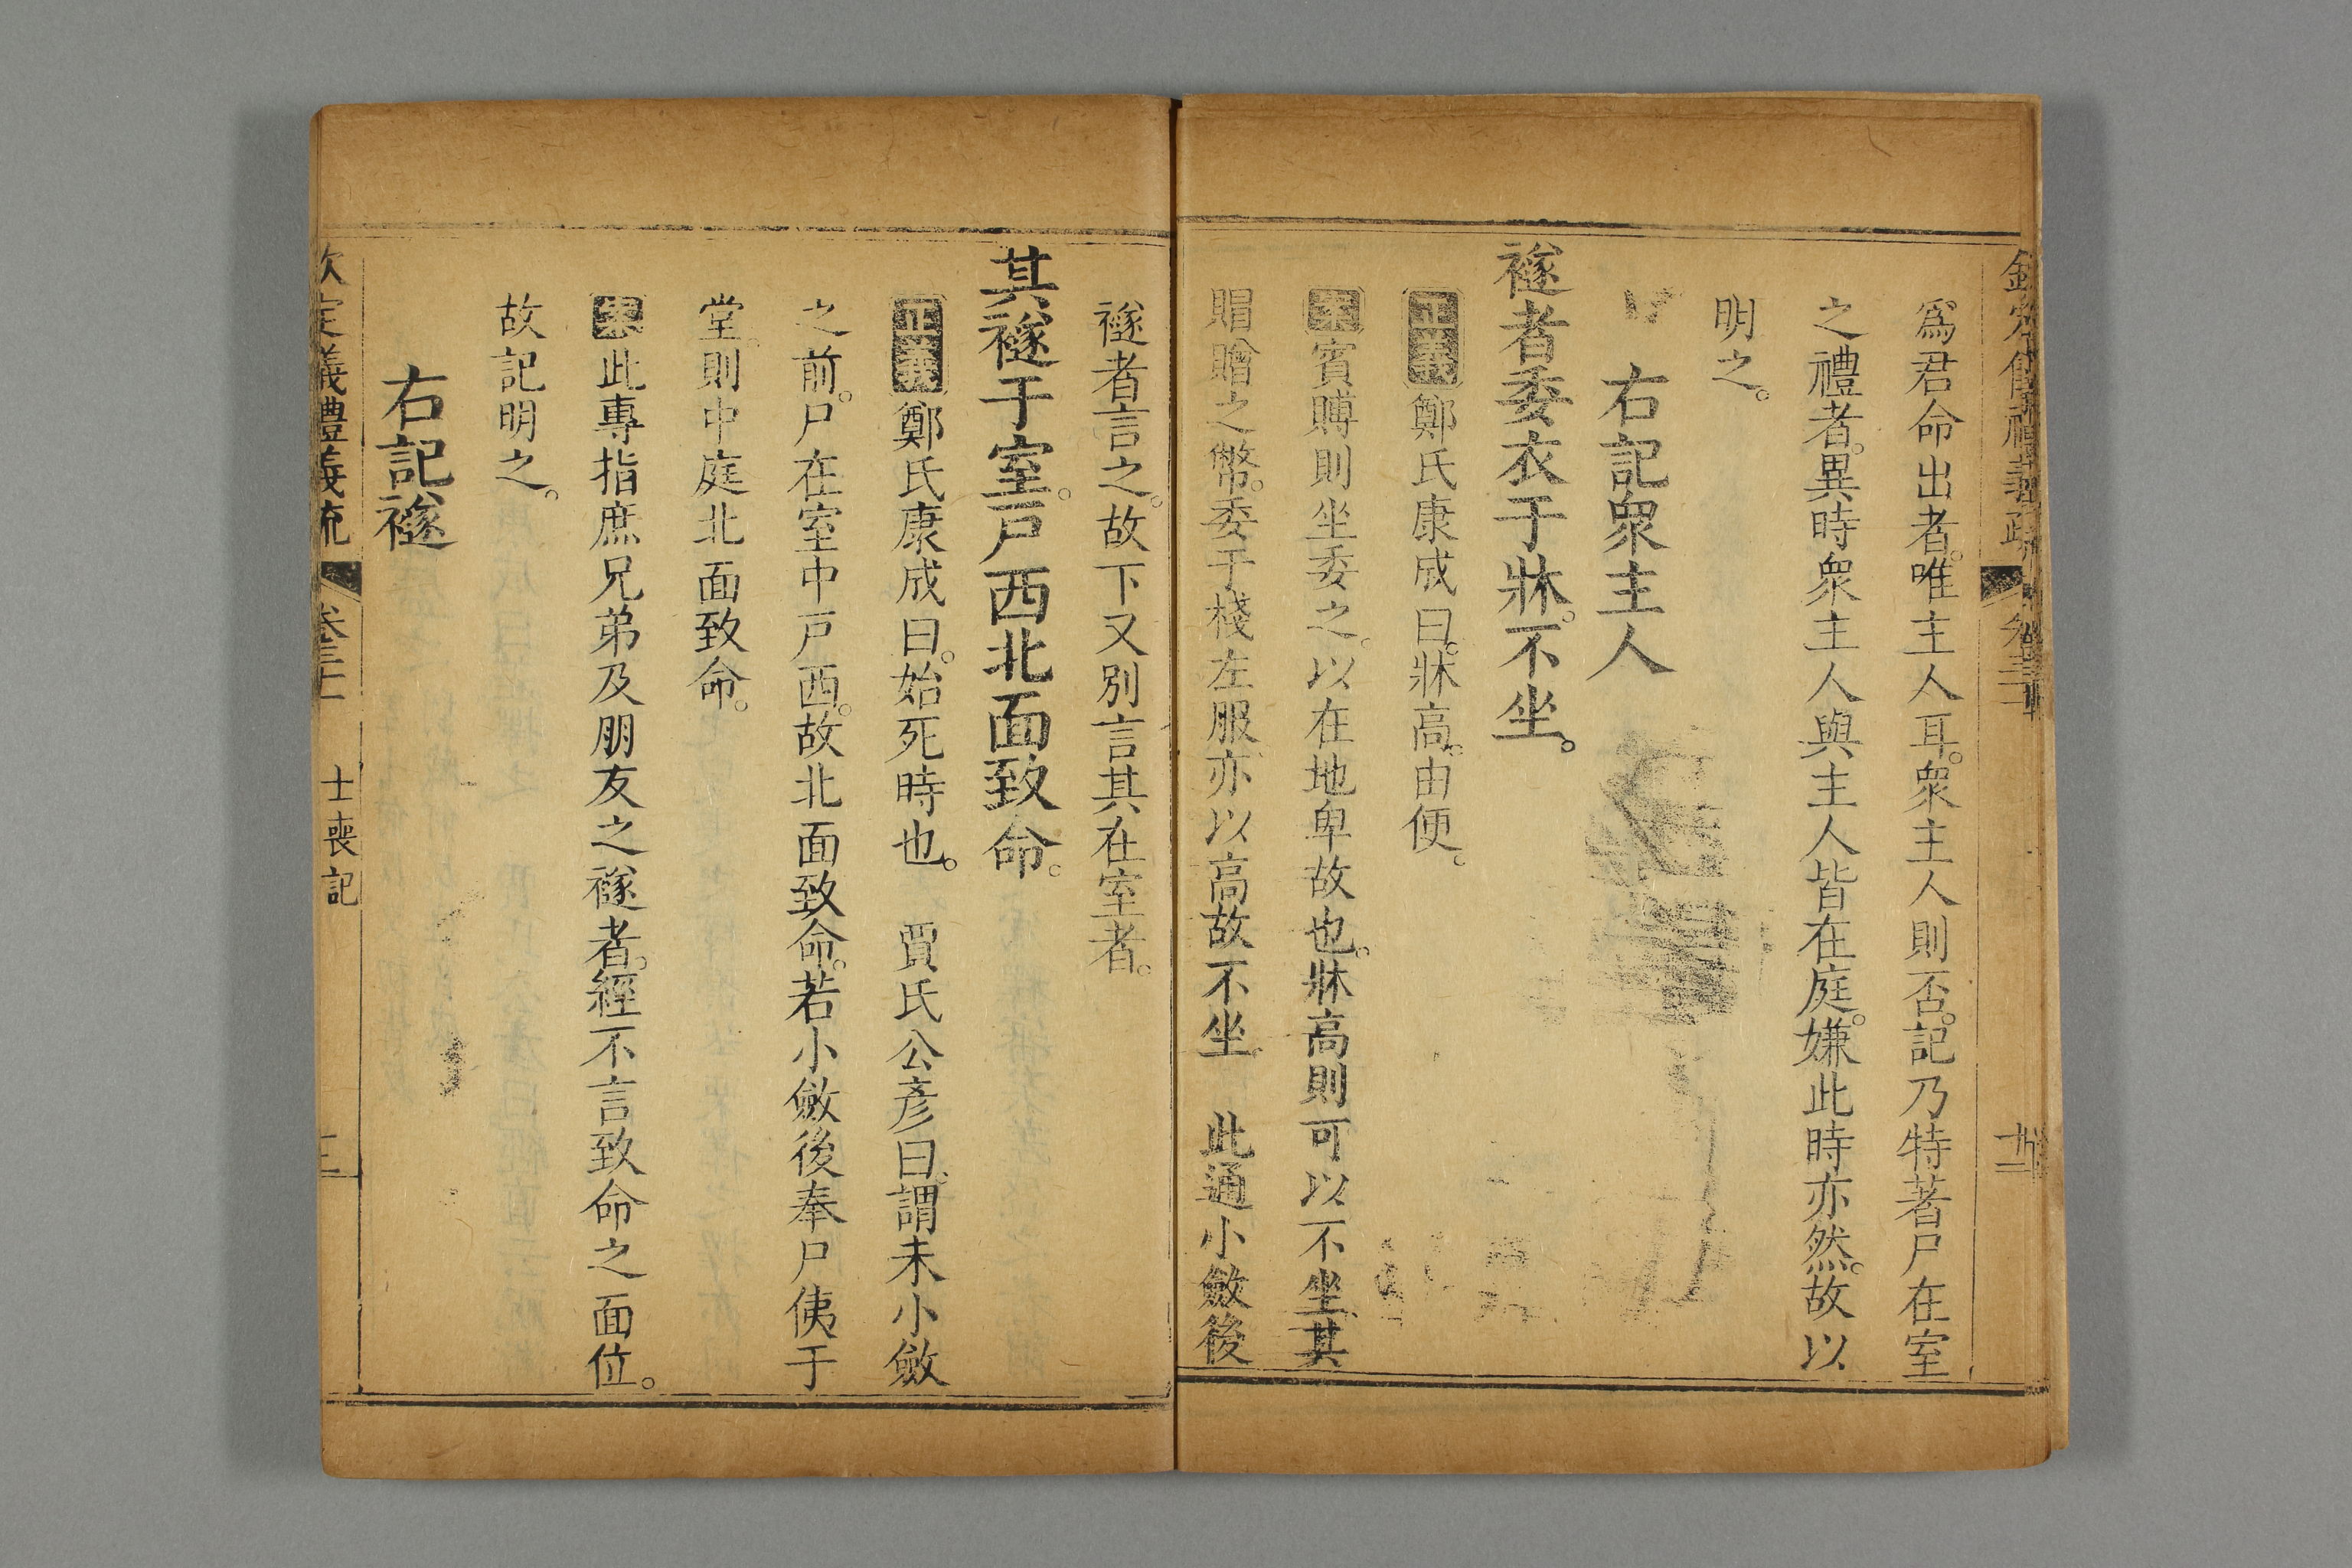 爲君命出者。唯主人耳。衆主人則否。記乃特著尸在室
之禮者。異時衆主人與主人皆在庭。嫌此時亦然。故以
明之。
右記衆主人
襚者委衣于牀。不坐。
正義鄭氏康成曰。牀高。由便。
案賓賻則坐委之。以在地卑故也。牀高則可以不坐。其
賵贈之幣。委于棧左服。亦以高故不坐 此通小斂後
襚者言之。故下又別言其在室者。
其襚于室。戸西北面致命。
正義鄭氏康成曰。始死時也。 賈氏公彥曰。謂未小斂
之前。尸在室中戸西。故北面致命。若小斂後奉尸侇于
堂。則中庭北面致命。
案此專指庶兄弟及朋友之襚者。經不言致命之面位。
故記明之。
右記襚
欽定儀禮義疏 士喪記